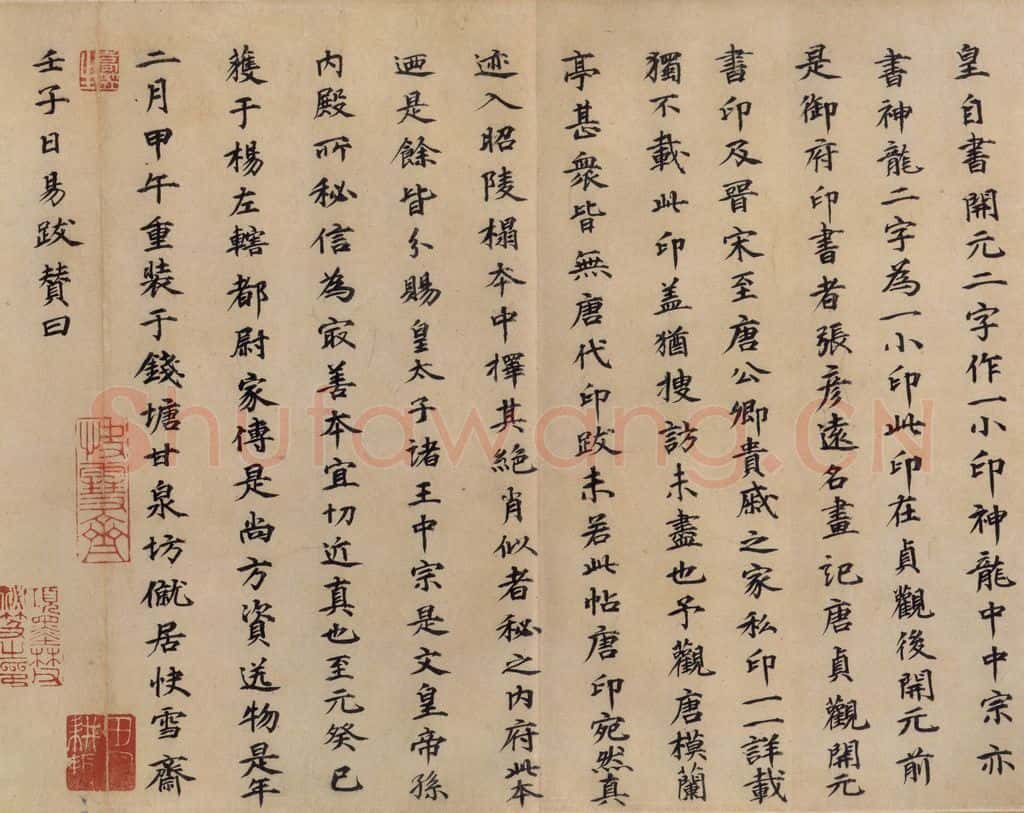 皇自書開元二字作一小印神龍中中宗亦
書神龍二字為一小印此印在貞觀後開元前
是御府印書者張彦遠名畫記唐貞觀開元
書印及晉宋至唐公卿貴戚之家私印一一詳載
獨不載此印盖猶搜訪未盡也予觀唐模蘭
亭甚衆皆無唐代印跋未若此帖唐印宛然真
迹入昭陵榻本中擇其絕肖似者秘之内府此本
迺是餘皆分賜皇太子諸王中宗是文皇帝孫
内殿所秘信為㝡善本宜切近真也至元癸巳
獲于楊左轄都尉家傳是尚方資送物是年
二月甲午重裝于錢塘甘泉坊僦居快雪齋
壬子日易跋賛曰
快雪齋
項墨林父
秘笈之印
Shufawang.CN